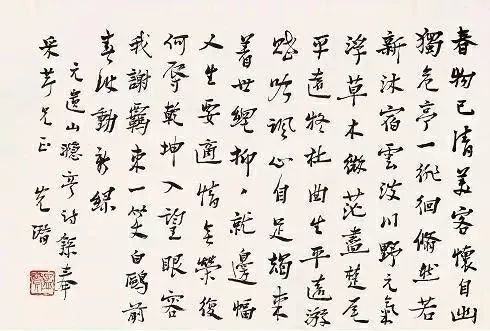 春物已清美客懷自幽
獨危亭一徘徊翛然若
新沐宿雲淡川野元氣
浮草木微茫盡楚尾
平遠疑杜曲生平遠游
賦吟諷心自足朅來
着世網抑、就邊幅
人生要適情無榮復
何辱乾坤入望眼容
我謝羈束一笑白鷗前
春波動新綠
元遺山隱亭詩錄奉
兄正